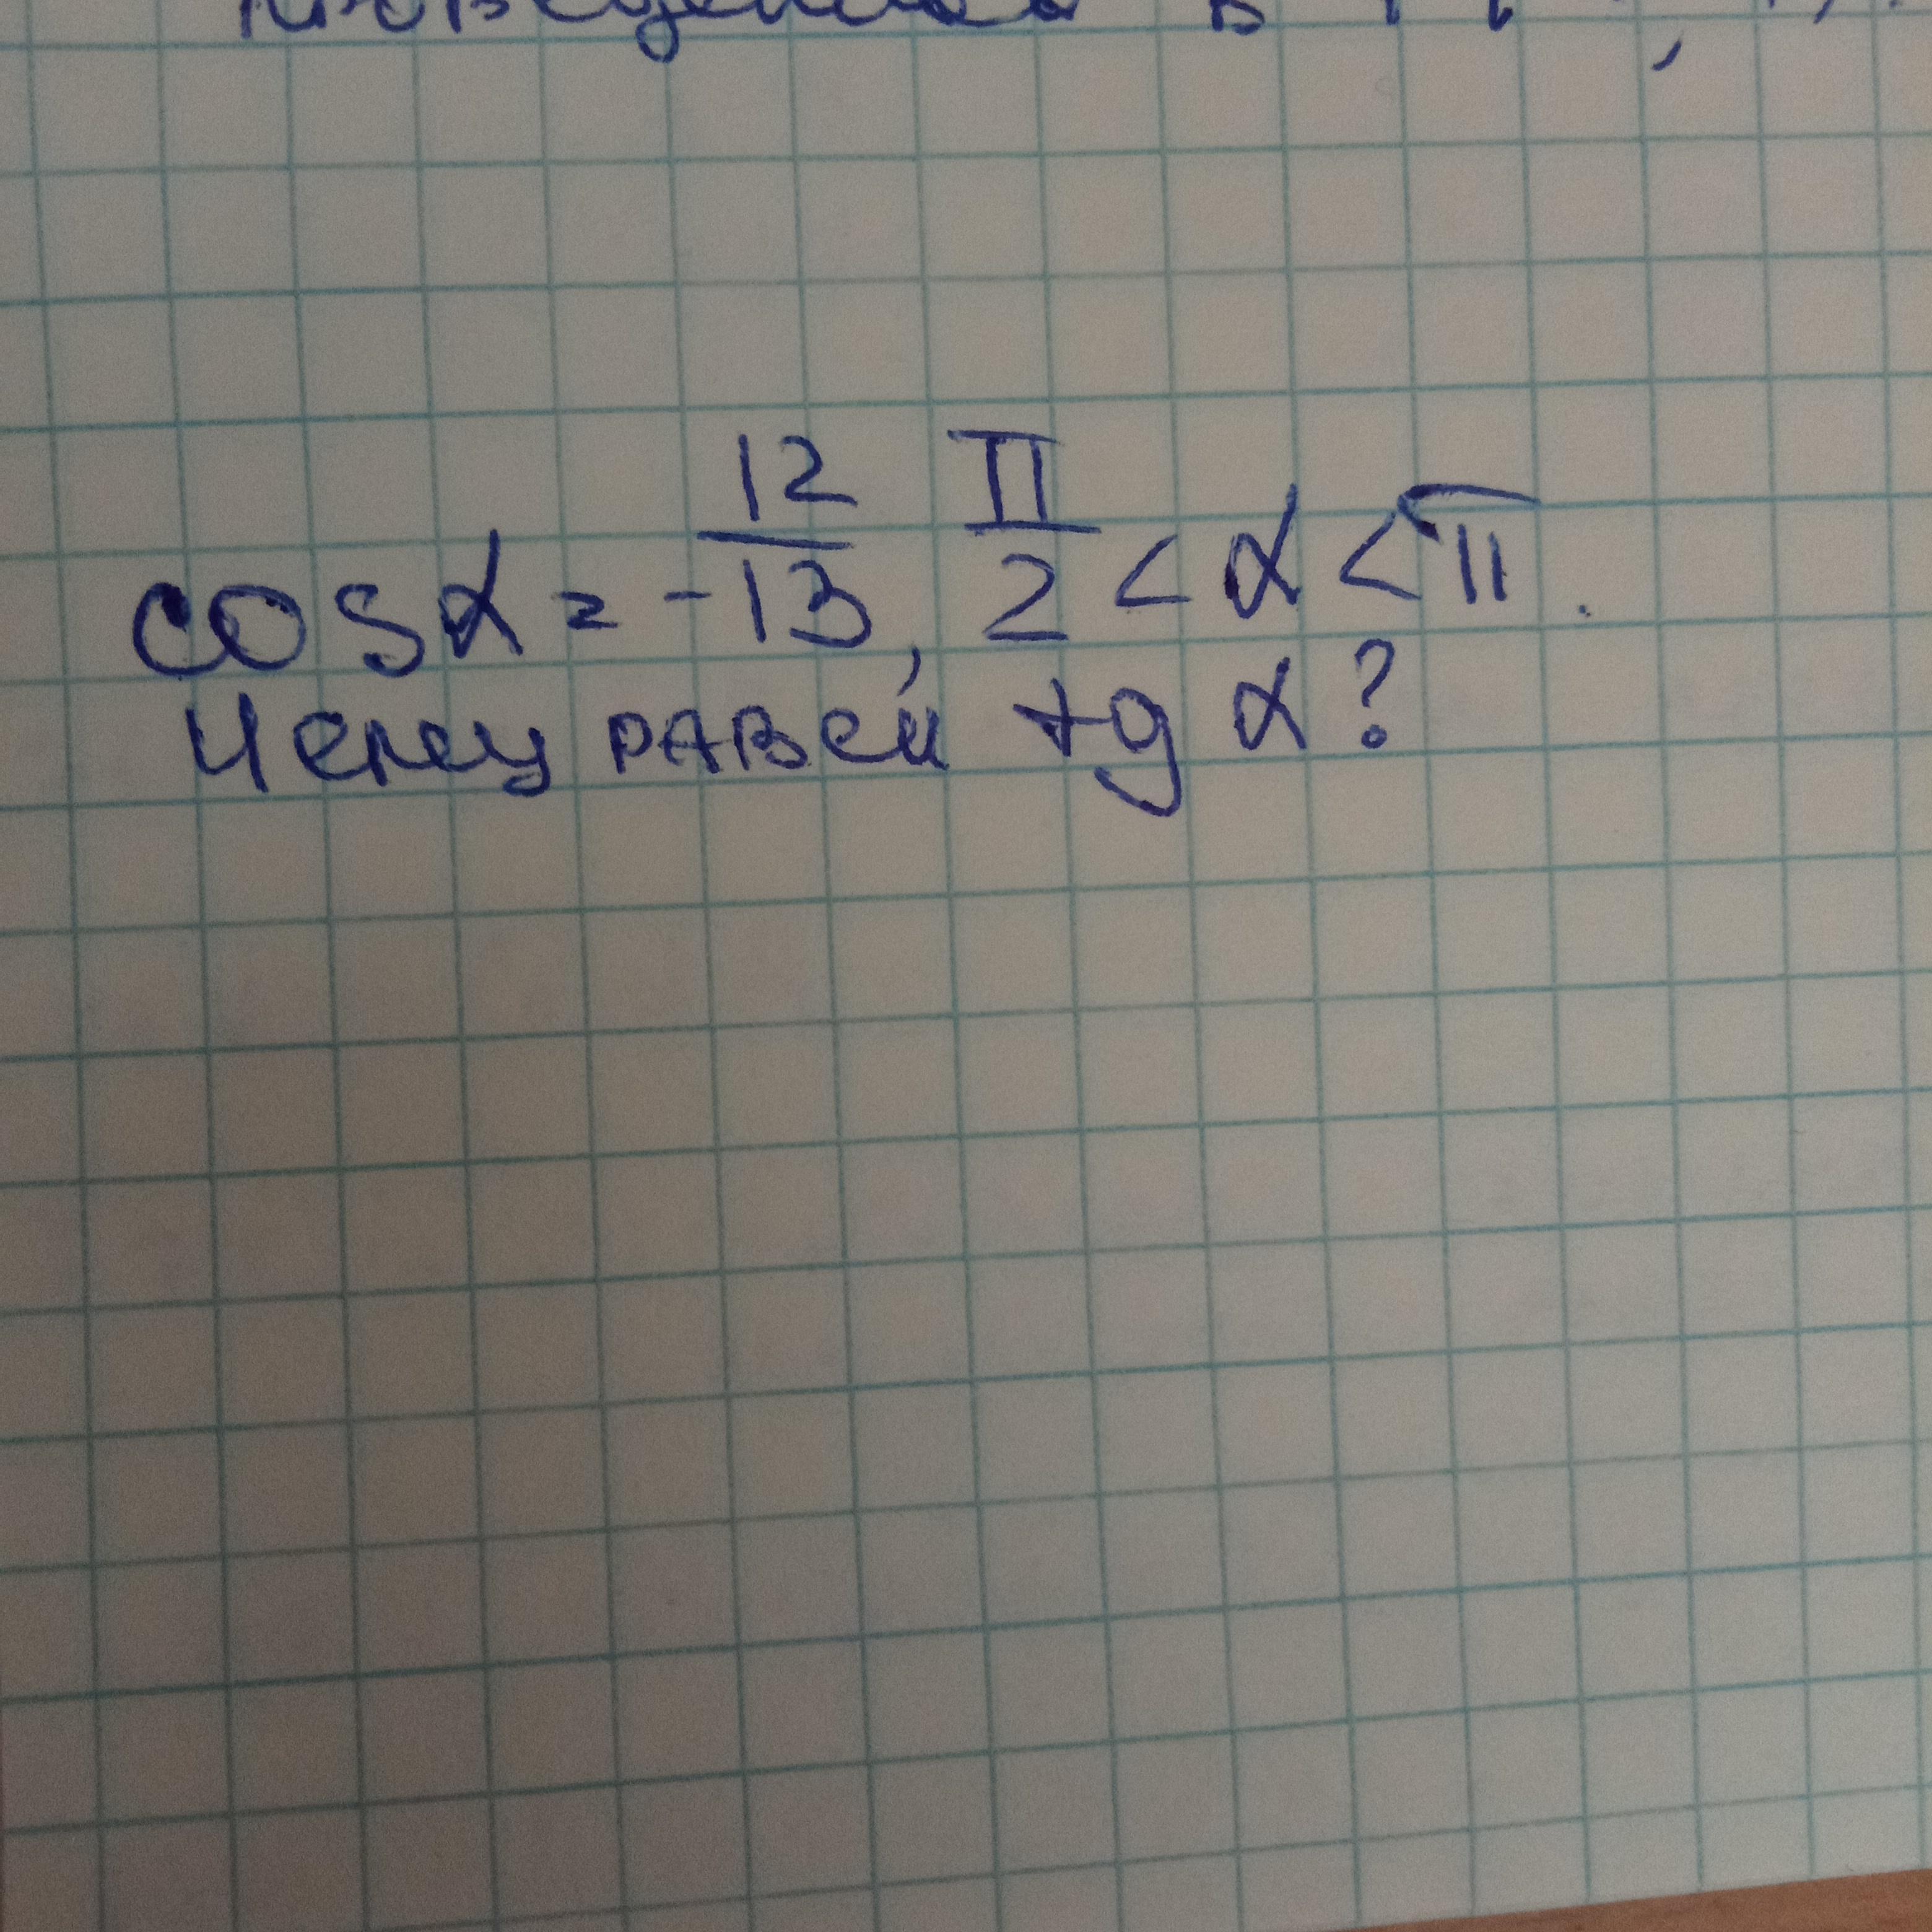 cos α = - 12/13, π/2 < α < π.
Чему равен tg α?